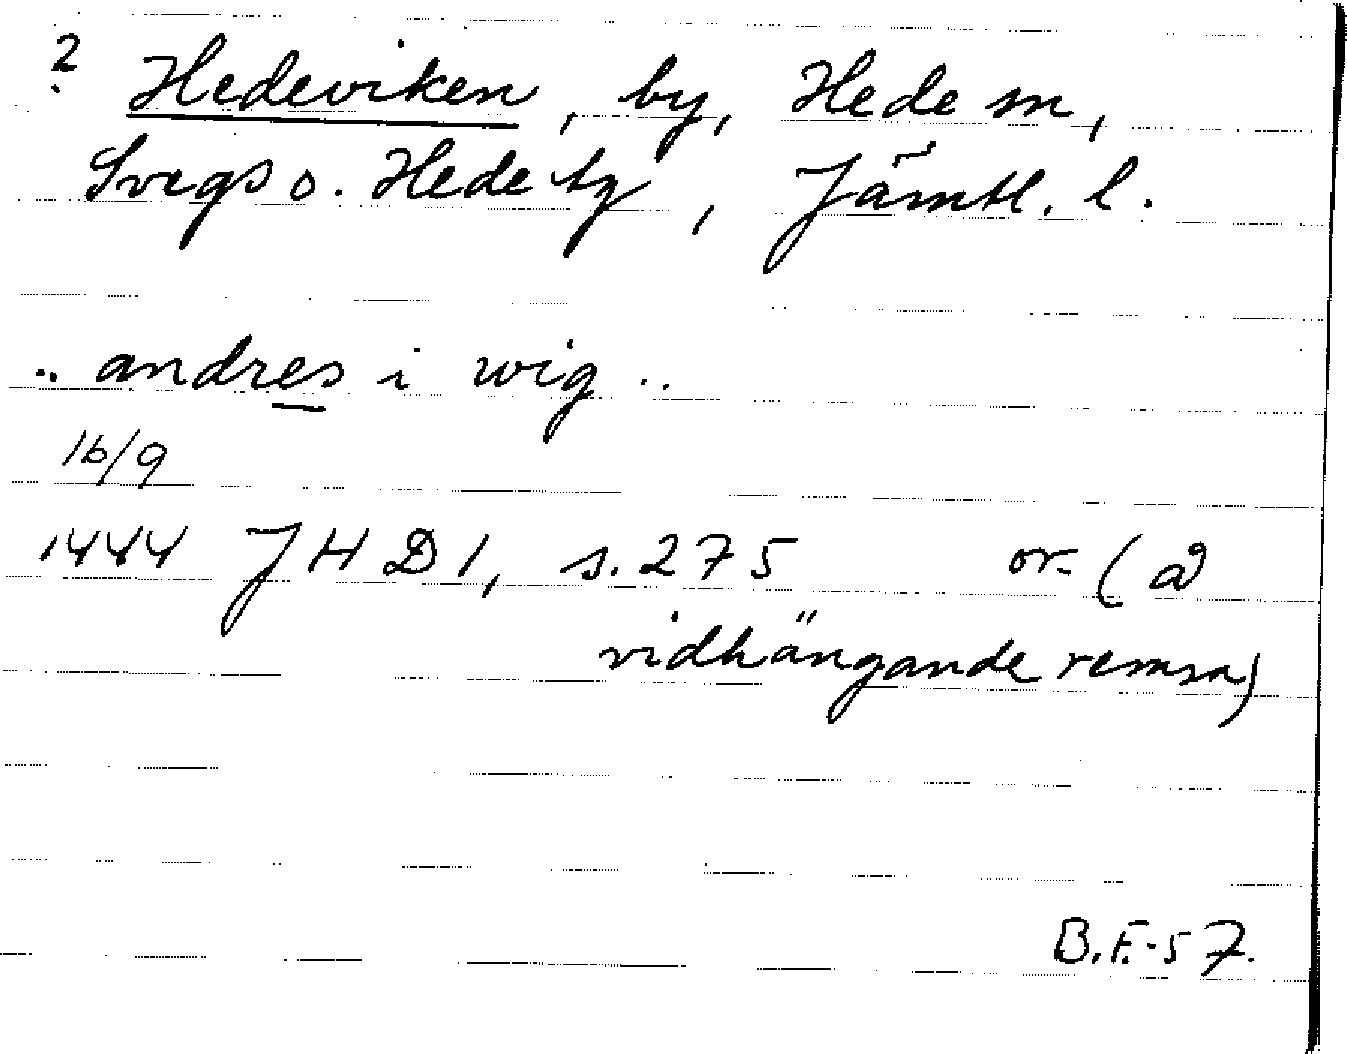 ? Hedeviken, by, Hede sn,
Svegs o. Hede tg, Jämtl. l.
.. andres i wig ..
16/9
1444 JHD 1, s. 275 or. (å
vidhängande remsa)
B.F.-57.